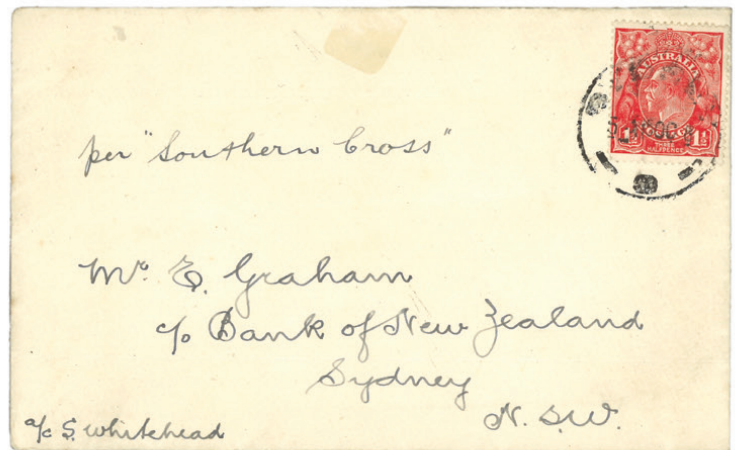 AUSTRALIA
1½ 1½
THREE
HALFPENCE
per "Southern Cross"
Mr. E. Graham
c/o Bank of New Zealand
Sydney
N.S.W.
a/c S. Whitehead